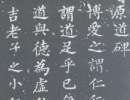 原道碑
博愛之謂仁
謂道足乎己
道與德為虛
吉老子之小